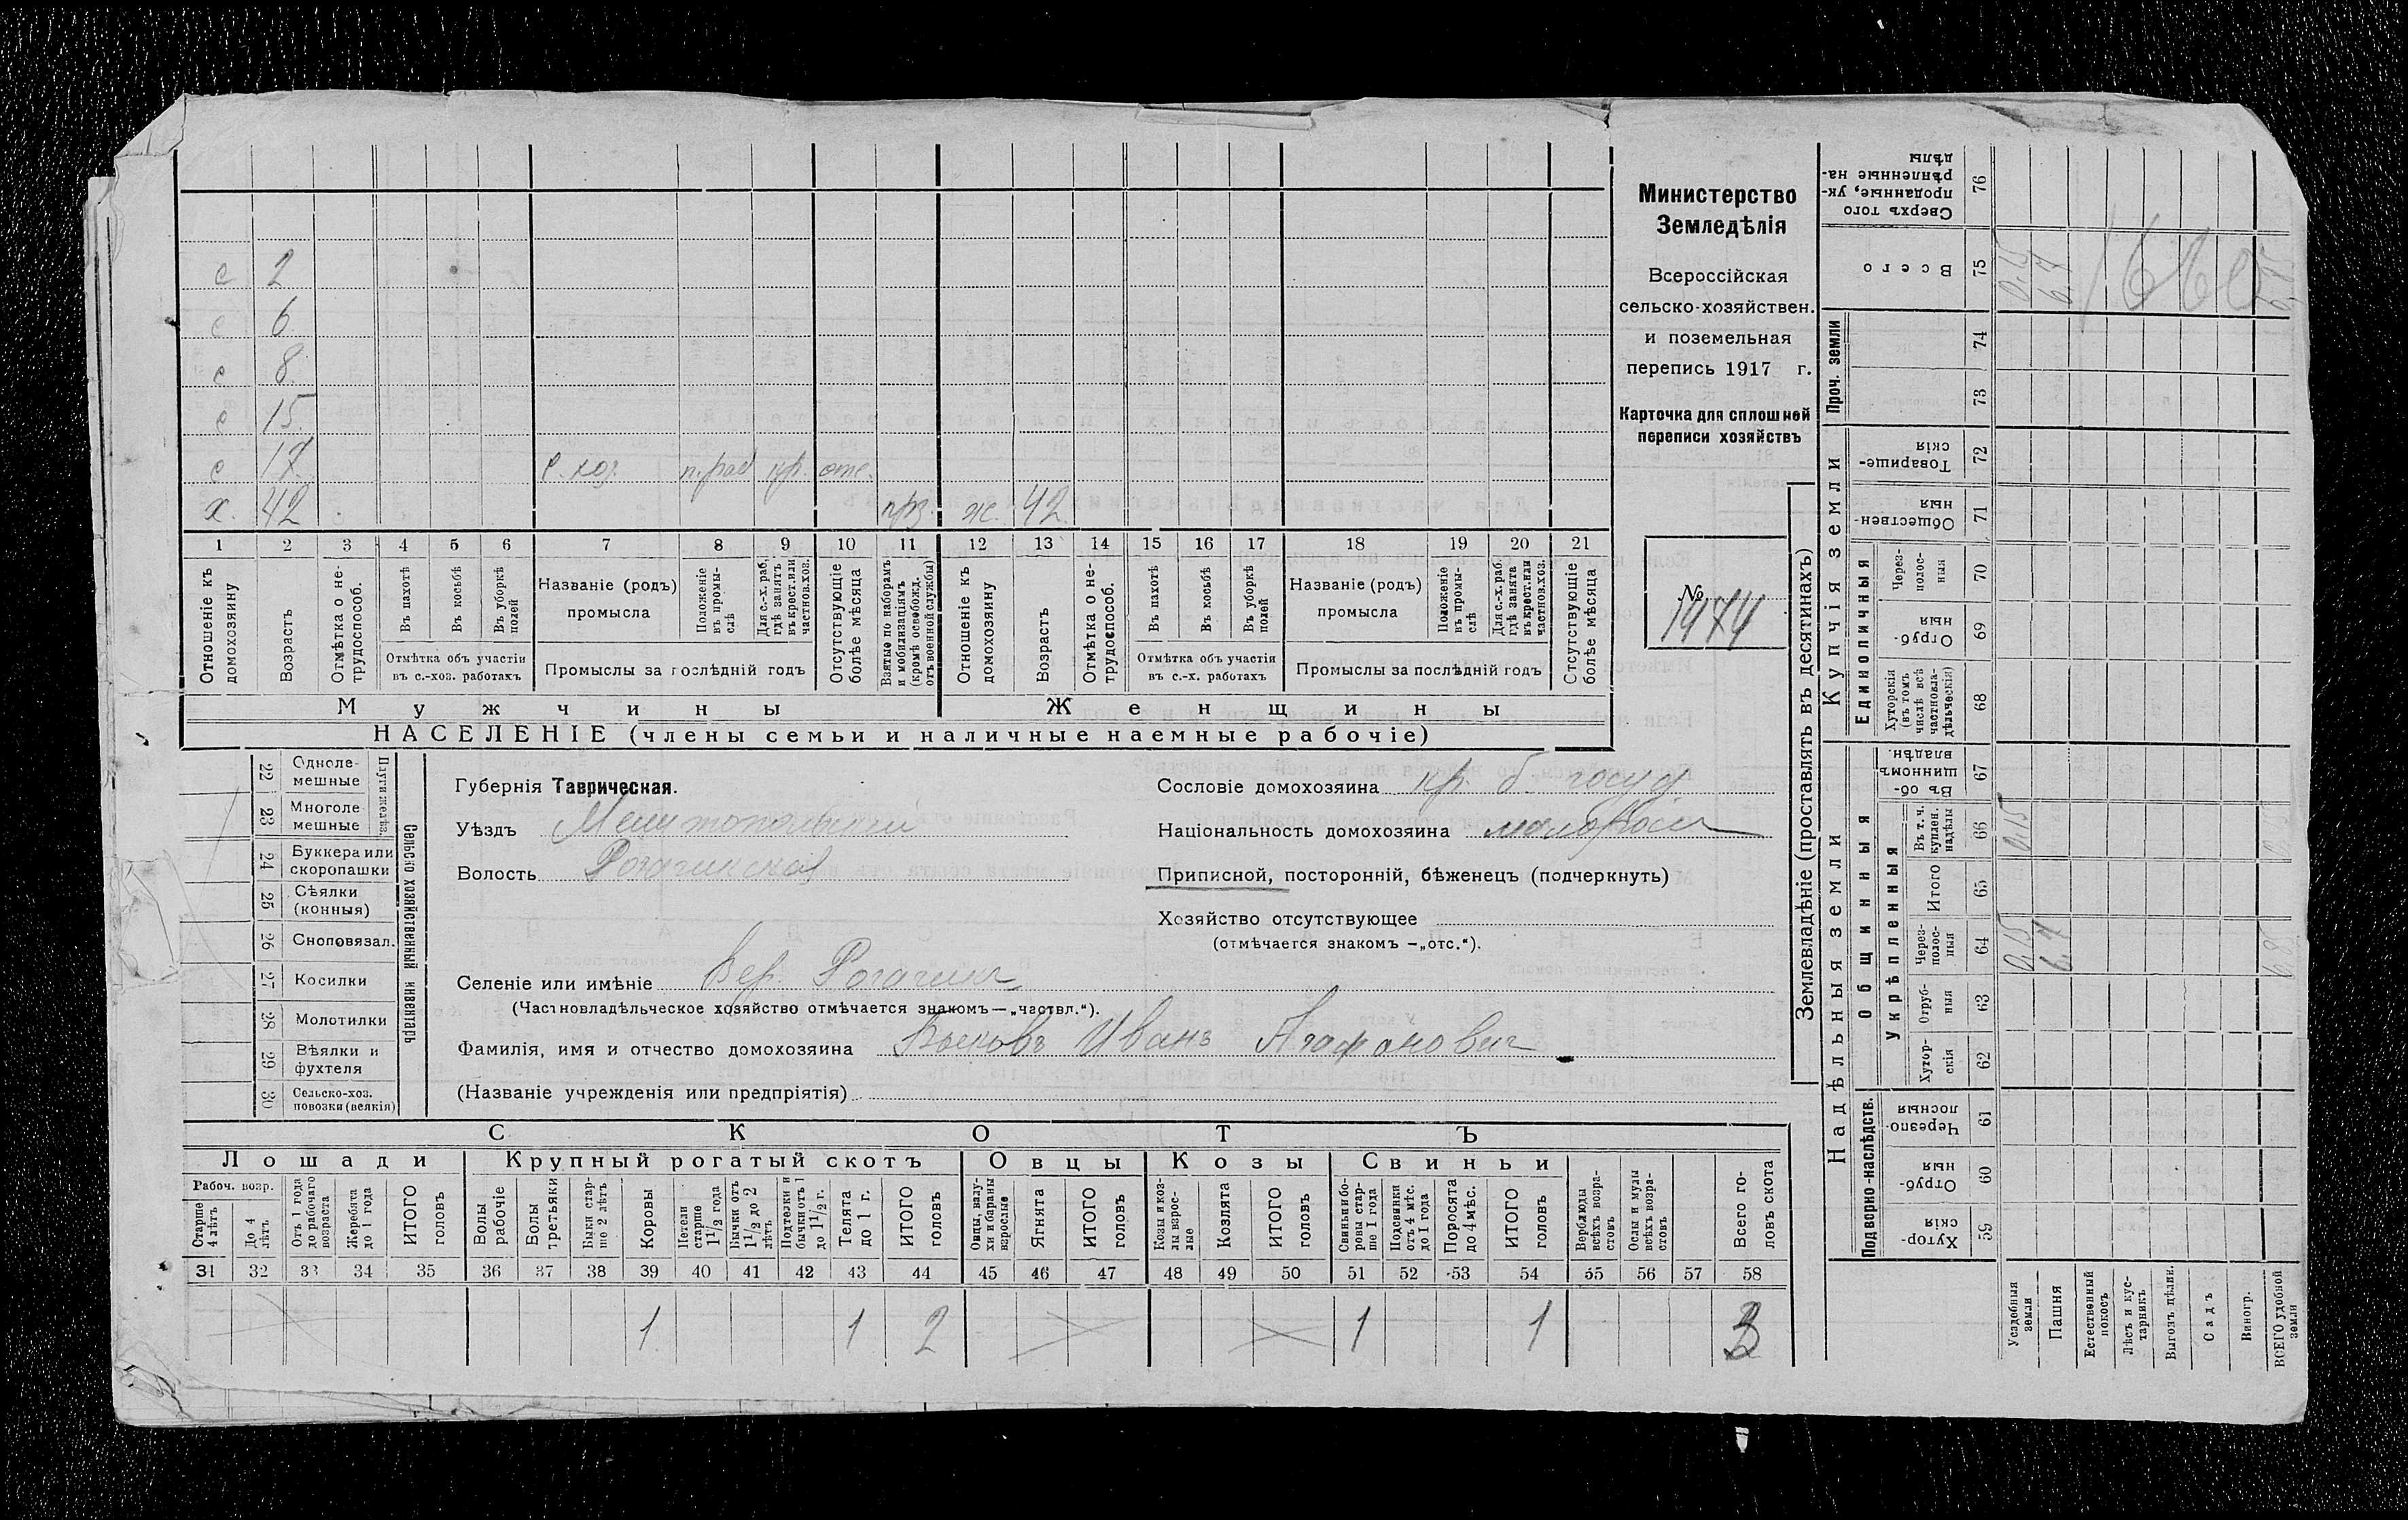 Министерство
Земледѣлія
Всероссійская
сельско-хозяйствен.
и поземельная
перепись 1917 г.
Карточка для сплошной
переписи хозяйствъ
№
1974
с 2
с 6
с 8
с 15
с 17 с. хоз. п. раб кр. отс.
х. 42 прз. ж. 42
1 2 3 4 5 6 7 8 9 10 11 12 13 14 15 16 17 18 19 20 21
Отношеніе къ домохозяину
Возрастъ
Отмѣтка о не-трудоспособ.
Въ пахотѣ
Въ косьбѣ
Въ уборкѣ полей
Отмѣтка объ участіи въ с.-хоз. работахъ
Названіе (родъ) промысла
Положеніе въ промы-слѣ
Для с.-х. раб. гдѣ занятъ въ крест. или частнов. хоз.
Промыслы за послѣдній годъ
Отсутствующіе болѣе мѣсяца
Взятые по наборамъ и мобилизаціямъ (кромѣ освобожд. отъ военной службы)
Отношеніе къ домохозяину
Возрастъ
Отмѣтка о не-трудоспособ.
Въ пахотѣ
Въ косьбѣ
Въ уборкѣ полей
Отмѣтка объ участіи въ с.-х. работахъ
Названіе (родъ) промысла
Положеніе въ промы-слѣ
Для с.-х. раб. гдѣ занята въ крест. или частнов. хоз.
Промыслы за послѣдній годъ
Отсутствующіе болѣе мѣсяца
Мужчины Женщины
НАСЕЛЕНІЕ (члены семьи и наличные наемные рабочіе)
22 Одноле-мешные
23 Многоле-мешные
Плуги желѣз.
24 Буккера или скоропашки
25 Сѣялки (конныя)
26 Сноповязал.
27 Косилки
28 Молотилки
29 Вѣялки и фухтеля
30 Сельско-хоз. повозки (всякія)
Сельско хозяйственный инвентарь
Губернія Таврическая.
Уѣздъ Мелитопольский
Волость Рогачикская
Селеніе или имѣніе Вер. Рогачик
(Частновладѣльческое хозяйство отмѣчается знакомъ—„частвл.“).
Фамилія, имя и отчество домохозяина Быковъ Иванъ Агафонович
(Названіе учрежденія или предпріятія)
Сословіе домохозяина кр. б. госуд
Національность домохозяина малоросс
Приписной, посторонній, бѣженецъ (подчеркнуть)
Хозяйство отсутствующее
(отмѣчается знакомъ —„отс.“).
СКОТЪ
Лошади Крупный рогатый скотъ Овцы Козы Свиньи
Рабоч. возр.
Старше 4 лѣтъ
До 4 лѣтъ
Отъ 1 года до рабочаго возраста
Жеребята до 1 года
ИТОГО головъ
Волы рабочіе
Волы третьяки
Быки стар-ше 2 лѣтъ
Коровы
Нетели старше 1 1/2 года
Бычки отъ 1 1/2 до 2 лѣтъ
Подтелки и бычки отъ 1 до 1 1/2 г.
Телята до 1 г.
ИТОГО головъ
Овцы, валу-хи и бараны взрослые
Ягнята
ИТОГО головъ
Козы и коз-лы взрос-лые
Козлята
ИТОГО головъ
Свиньи и бо-ровы стар-ше 1 года
Подсвинки отъ 4 мѣс. до 1 года
Поросята до 4 мѣс.
ИТОГО головъ
Верблюды всѣхъ возра-стовъ
Ослы и мулы всѣхъ возра-стовъ
Всего го-ловъ скота
31 32 33 34 35 36 37 38 39 40 41 42 43 44 45 46 47 48 49 50 51 52 53 54 55 56 57 58
1 1 2 1 1 3
Землевладѣніе (проставлять въ десятинахъ)
Надѣльныя земли Купчія земли Проч. земли
Подворно-наслѣдств. Общинныя Единоличныя
Укрѣпленныя
Хутор-скія 59
Отруб-ныя 60
Черезпо-лосныя 61
Хутор-скія 62
Отруб-ныя 63
Через-полос-ныя 64
Итого 65
Въ т. ч. куплен. надѣлы 66
Въ об-щинномъ владѣн. 67
Хуторскія (въ томъ числѣ всѣ частновла-дѣльческія) 68
Отруб-ныя 69
Через-полос-ныя 70
Обществен-ныя 71
Товарище-скія 72
73
74
Всего 75
Сверхъ того проданные, ук-рѣпленные на-дѣлы 76
Усадебныя земли 0,15 0,15 0,15
Пашня 6,7 6,7
Естественный покосъ
Лѣсъ и кус-тарникъ
Выгонъ, цѣлин.
Садъ
Виногр.
ВСЕГО удобной земли 6,85 6,85